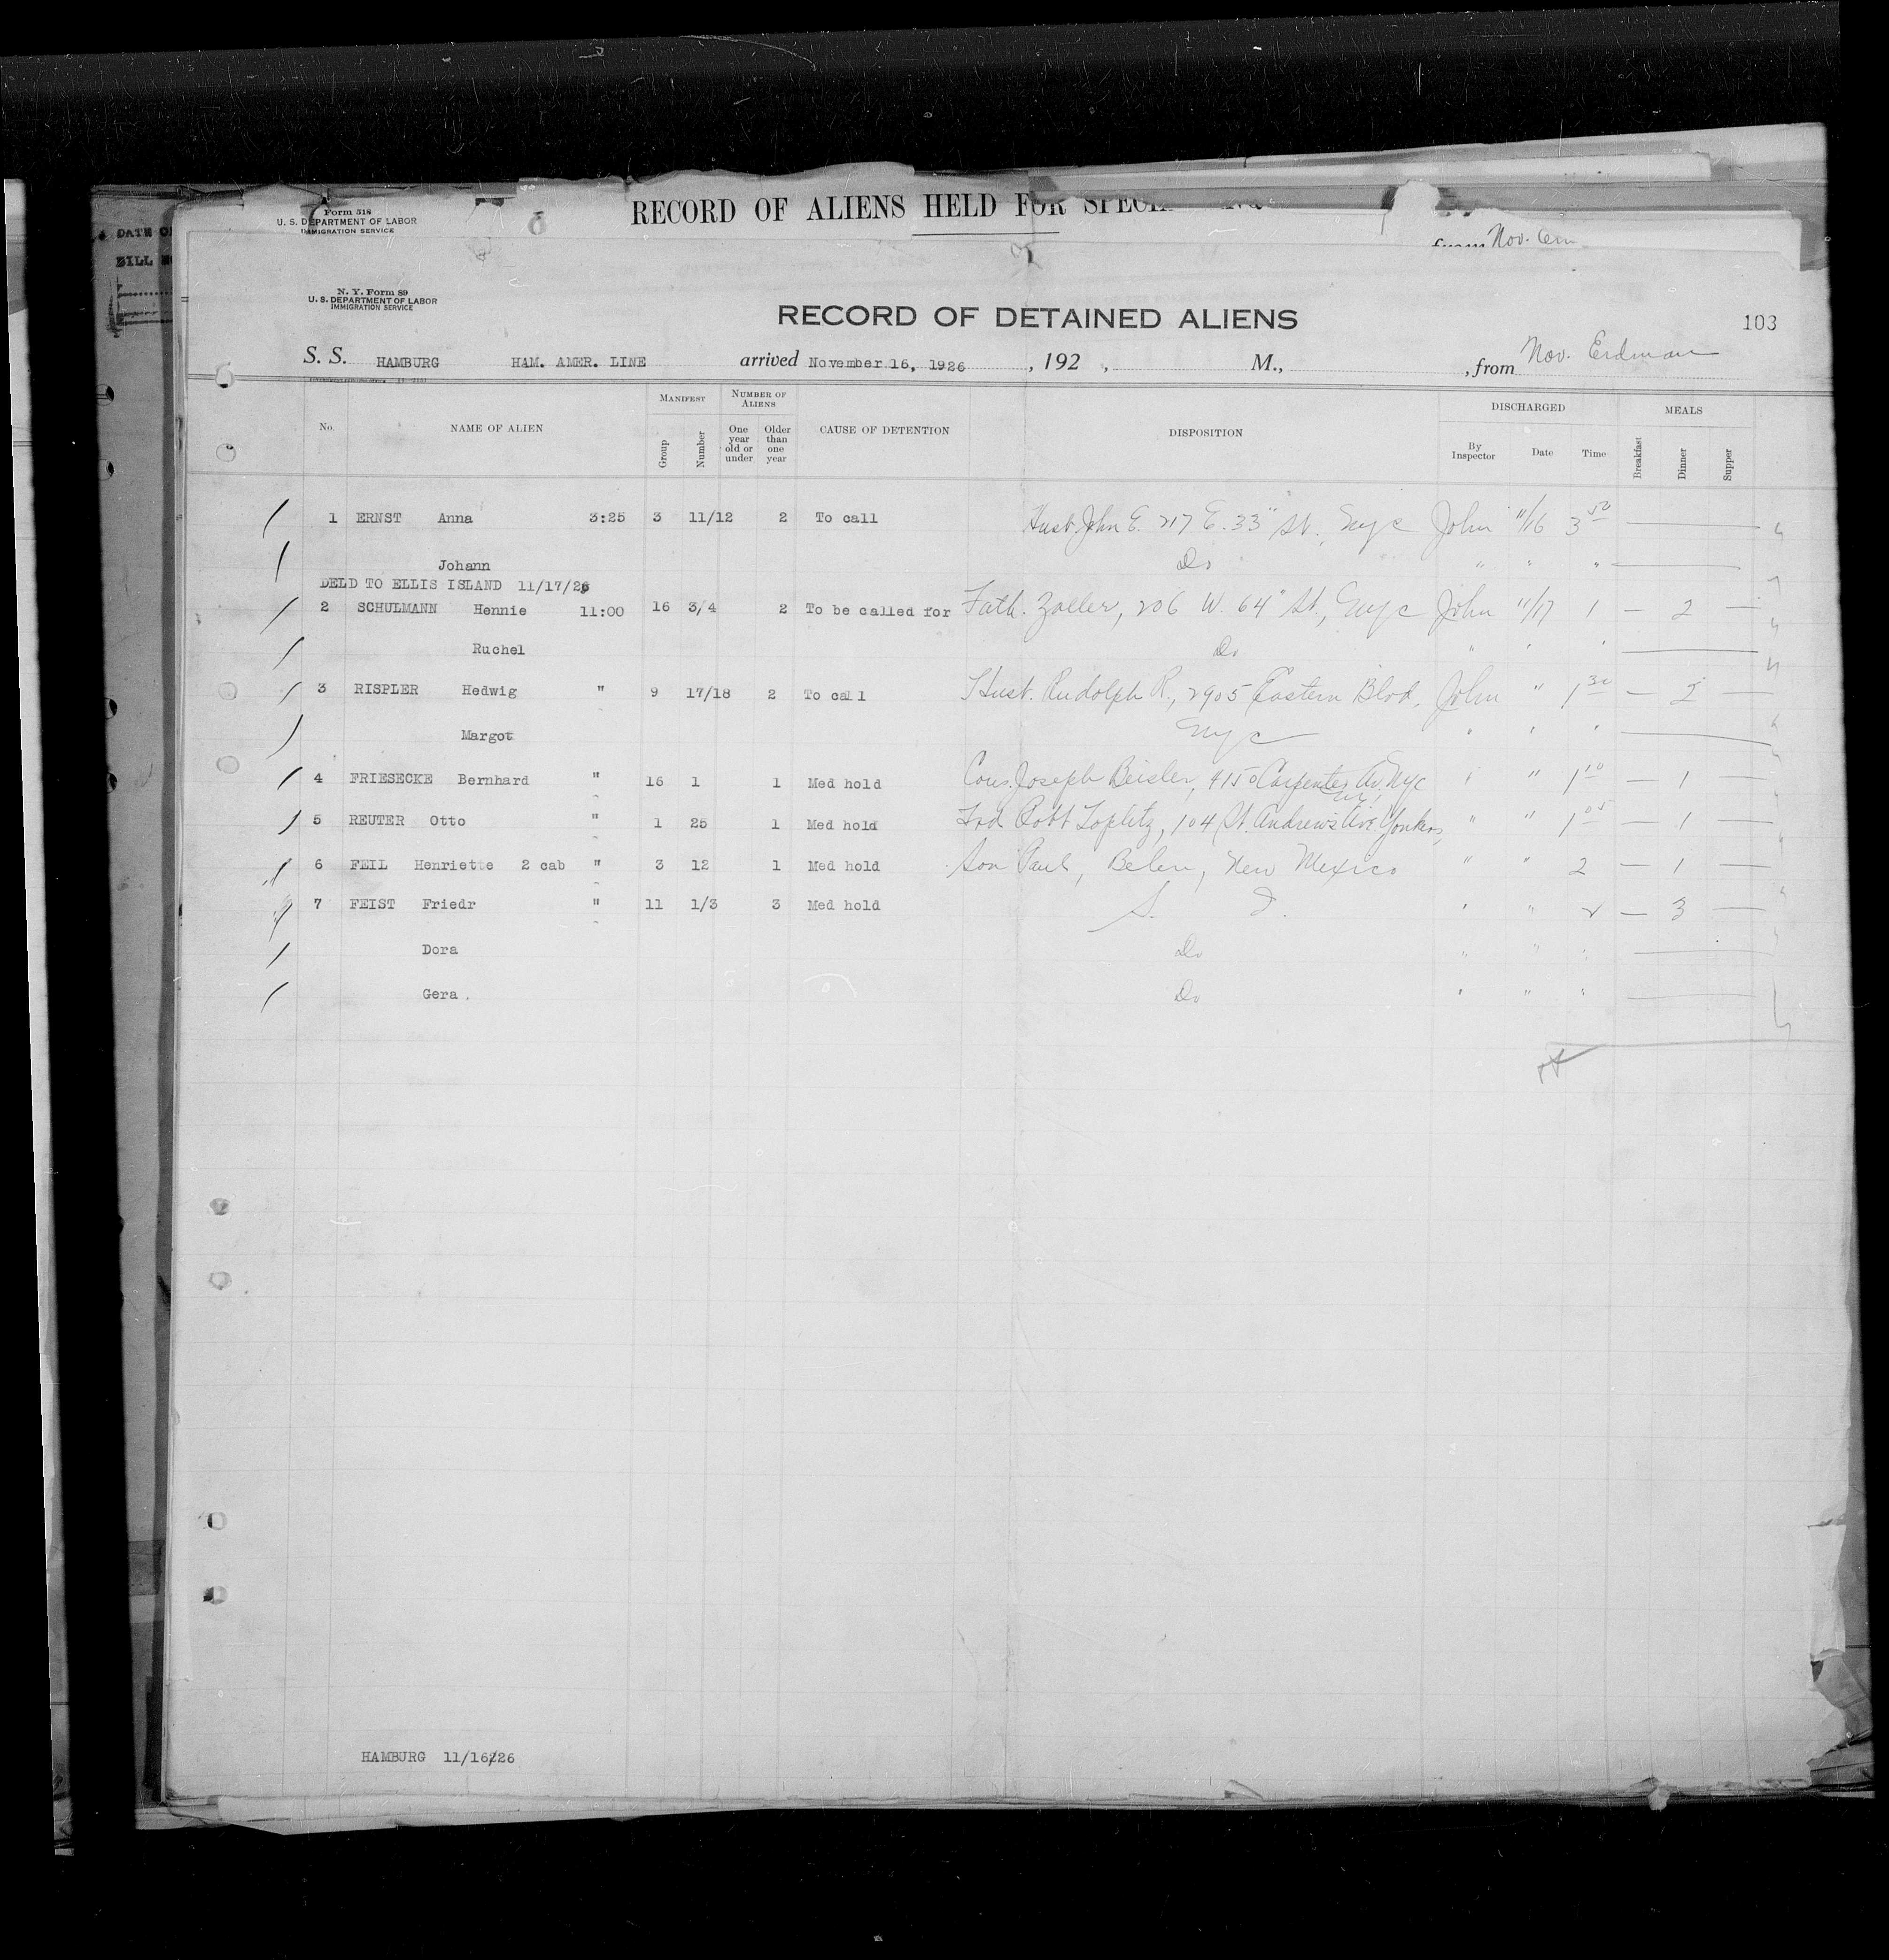 Form 518
U. S. DEPARTMENT OF LABOR
IMMIGRATION SERVICE
RECORD OF ALIENS HELD FOR
from Nov.
DATE
BILL
N. Y. Form 89
U. S. DEPARTMENT OF LABOR
IMMIGRATION SERVICE
RECORD OF DETAINED ALIENS
103
S. S. HAMBURG HAM. AMER. LINE arrived November 16, 1926, 192 , M., , from Nov. Erdman
No. NAME OF ALIEN MANIFEST Group Number NUMBER OF ALIENS One year old or under Older than one year CAUSE OF DETENTION DISPOSITION DISCHARGED By Inspector Date Time MEALS Breakfast Dinner Supper
1 ERNST Anna 3:25 3 11/12 2 To call Husb. John E. 217 E. 33" St., Nyc John 11/16 3 50
Johann Do " " "
DELD TO ELLIS ISLAND 11/17/26
2 SCHULMANN Hennie 11:00 16 3/4 2 To be called for Fath. Zoller, 206 W. 64" St., Nyc John 11/17 1 — 2 —
Ruchel Do " " "
3 RISPLER Hedwig " 9 17/18 2 To call Husb. Rudolph R., 2905 Eastern Blvd, John " 1 30 — 2
Margot Nyc " " "
4 FRIESECKE Bernhard " 16 1 1 Med hold Cous. Joseph Beisler, 4150 Carpenter Av. Nyc " " 1 10 — 1 —
5 REUTER Otto " 1 25 1 Med hold Frd Robt Toplitz, 104 St. Andrews Ave. Yonkers, " " 1 05 — 1 —
6 FEIL Henriette 2 cab " 3 12 1 Med hold Son Paul, Belen, New Mexico " " 2 — 1 —
7 FEIST Friedr " 11 1/3 3 Med hold S. I. " " 2 — 3 —
Dora Do " " "
Gera. Do " " "
HAMBURG 11/16/26